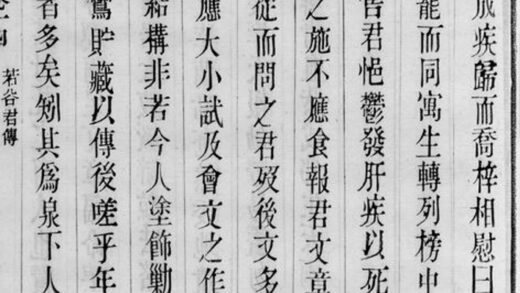 成疾歸而喬梓相慰曰
能而同寓生轉列榜中
告君悒鬱發肝疾以死
之施不應食報君文章
從而問之君歿後文多
應大小試及會文之作
結搆非若今人塗飾勦
貯藏以傳後嗟乎年
者多矣矧其為泉下人
若谷君傳